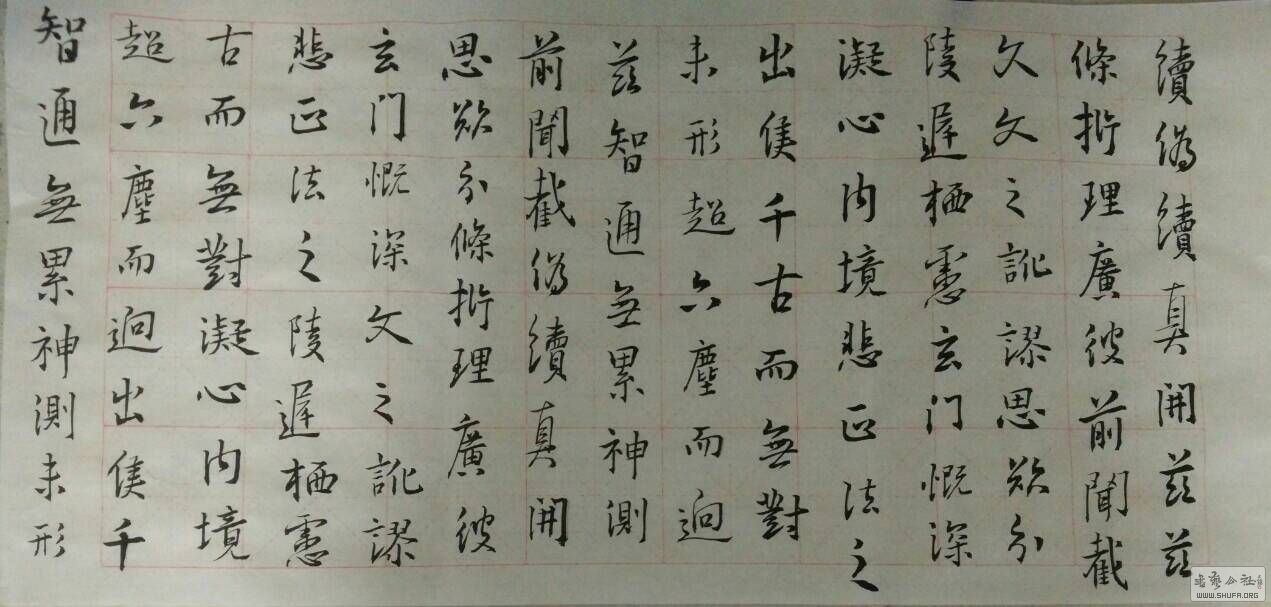 續偽續真開茲茲
條析理廣彼前聞截
久文之訛謬思欲分
陵遲栖慮玄门慨深
凝心内境悲正法之
出隻千古而無對
未形超六塵而迥
茲智通無累神測
前聞截偽續真開
思欲分條析理廣彼
玄门慨深文之訛謬
悲正法之陵遲栖慮
古而無對凝心内境
超六塵而迥出隻千
智通無累神測未形
WWW.SHUFA.ORG